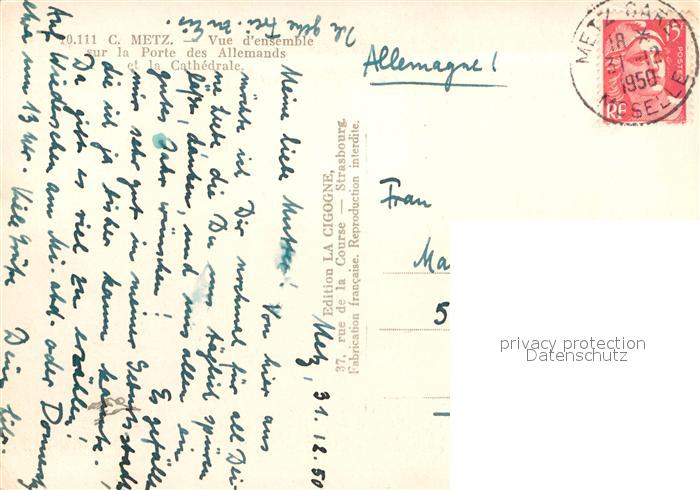 10.111 C. METZ. — Vue d'ensemble
sur la Porte des Allemands
et la Cathédrale.
Metz, 31.12.50
Meine liebe Mutter! Von hier aus
möchte ich Dir nochmal für all Dei-
ne Liebe die Du uns täglich spüren
läßt, danken, und uns allen ein
gutes Jahr wünschen! Es gefällt
mir sehr gut in meiner Geburtsstadt
die ich ja bisher kaum kannte.
Da gibt es viel zu erzählen!
Auf Wiedersehen am Mi. abd. oder Donnerstg
etwa um 13 Uhr. Viele Grüße Deine
Edition LA CIGOGNE,
37, rue de la Course — Strasbourg.
Fabrication française. Reproduction interdite.
Allemagne!
METZ GARE
18 X
31-12
1950
MOSELLE
15F
POSTES
RF
Frau
Ma
5
privacy protection
Datenschutz